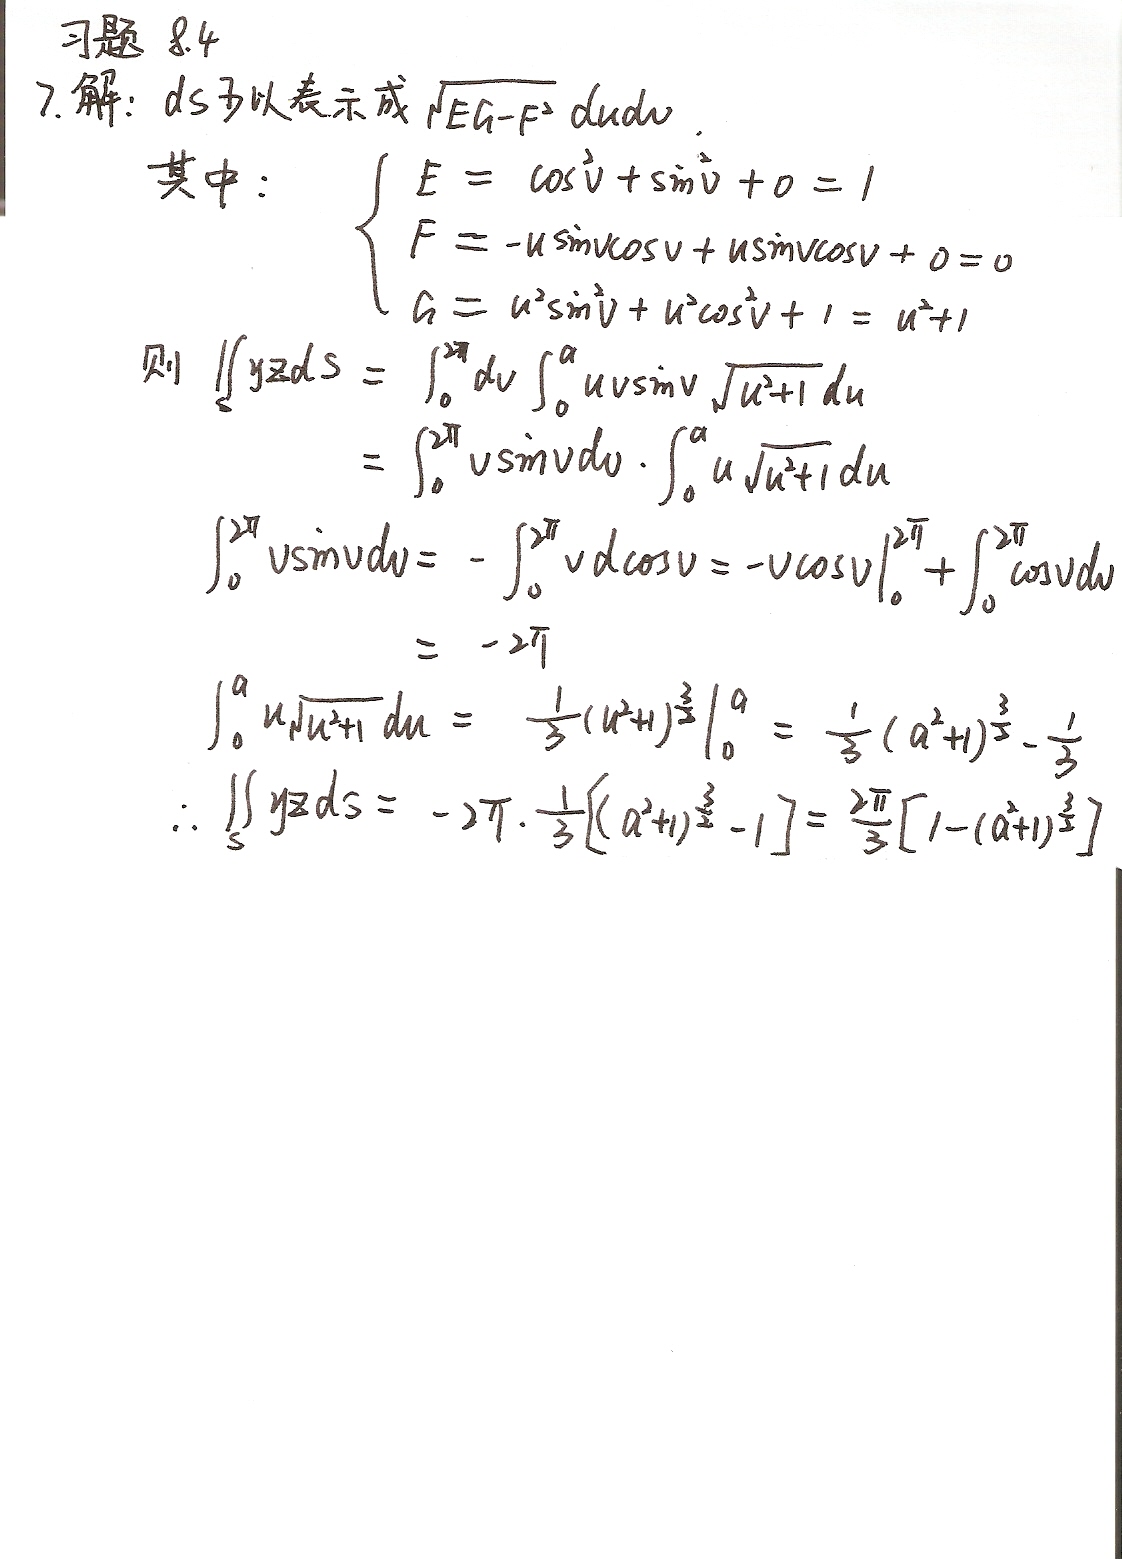 习题 8.4
7.解: ds可以表示成 √(EG-F²) dudv.
其中: { E = cos²v + sin²v + 0 = 1
F = -u sinvcosv + usinvcosv + 0 = 0
G = u²sin²v + u²cos²v + 1 = u²+1
则 ∬_S yzds = ∫₀^{2π} dv ∫₀^a uvsinv √(u²+1) du
= ∫₀^{2π} vsinvdv · ∫₀^a u √(u²+1) du
∫₀^{2π} vsinvdv = - ∫₀^{2π} v dcosv = -vcosv |₀^{2π} + ∫₀^{2π} cosvdv
= -2π
∫₀^a u√(u²+1) du = 1/3 (u²+1)^{3/2} |₀^a = 1/3 (a²+1)^{3/2} - 1/3
∴ ∬_S yzds = -2π · 1/3 [(a²+1)^{3/2} - 1] = 2π/3 [1-(a²+1)^{3/2}]